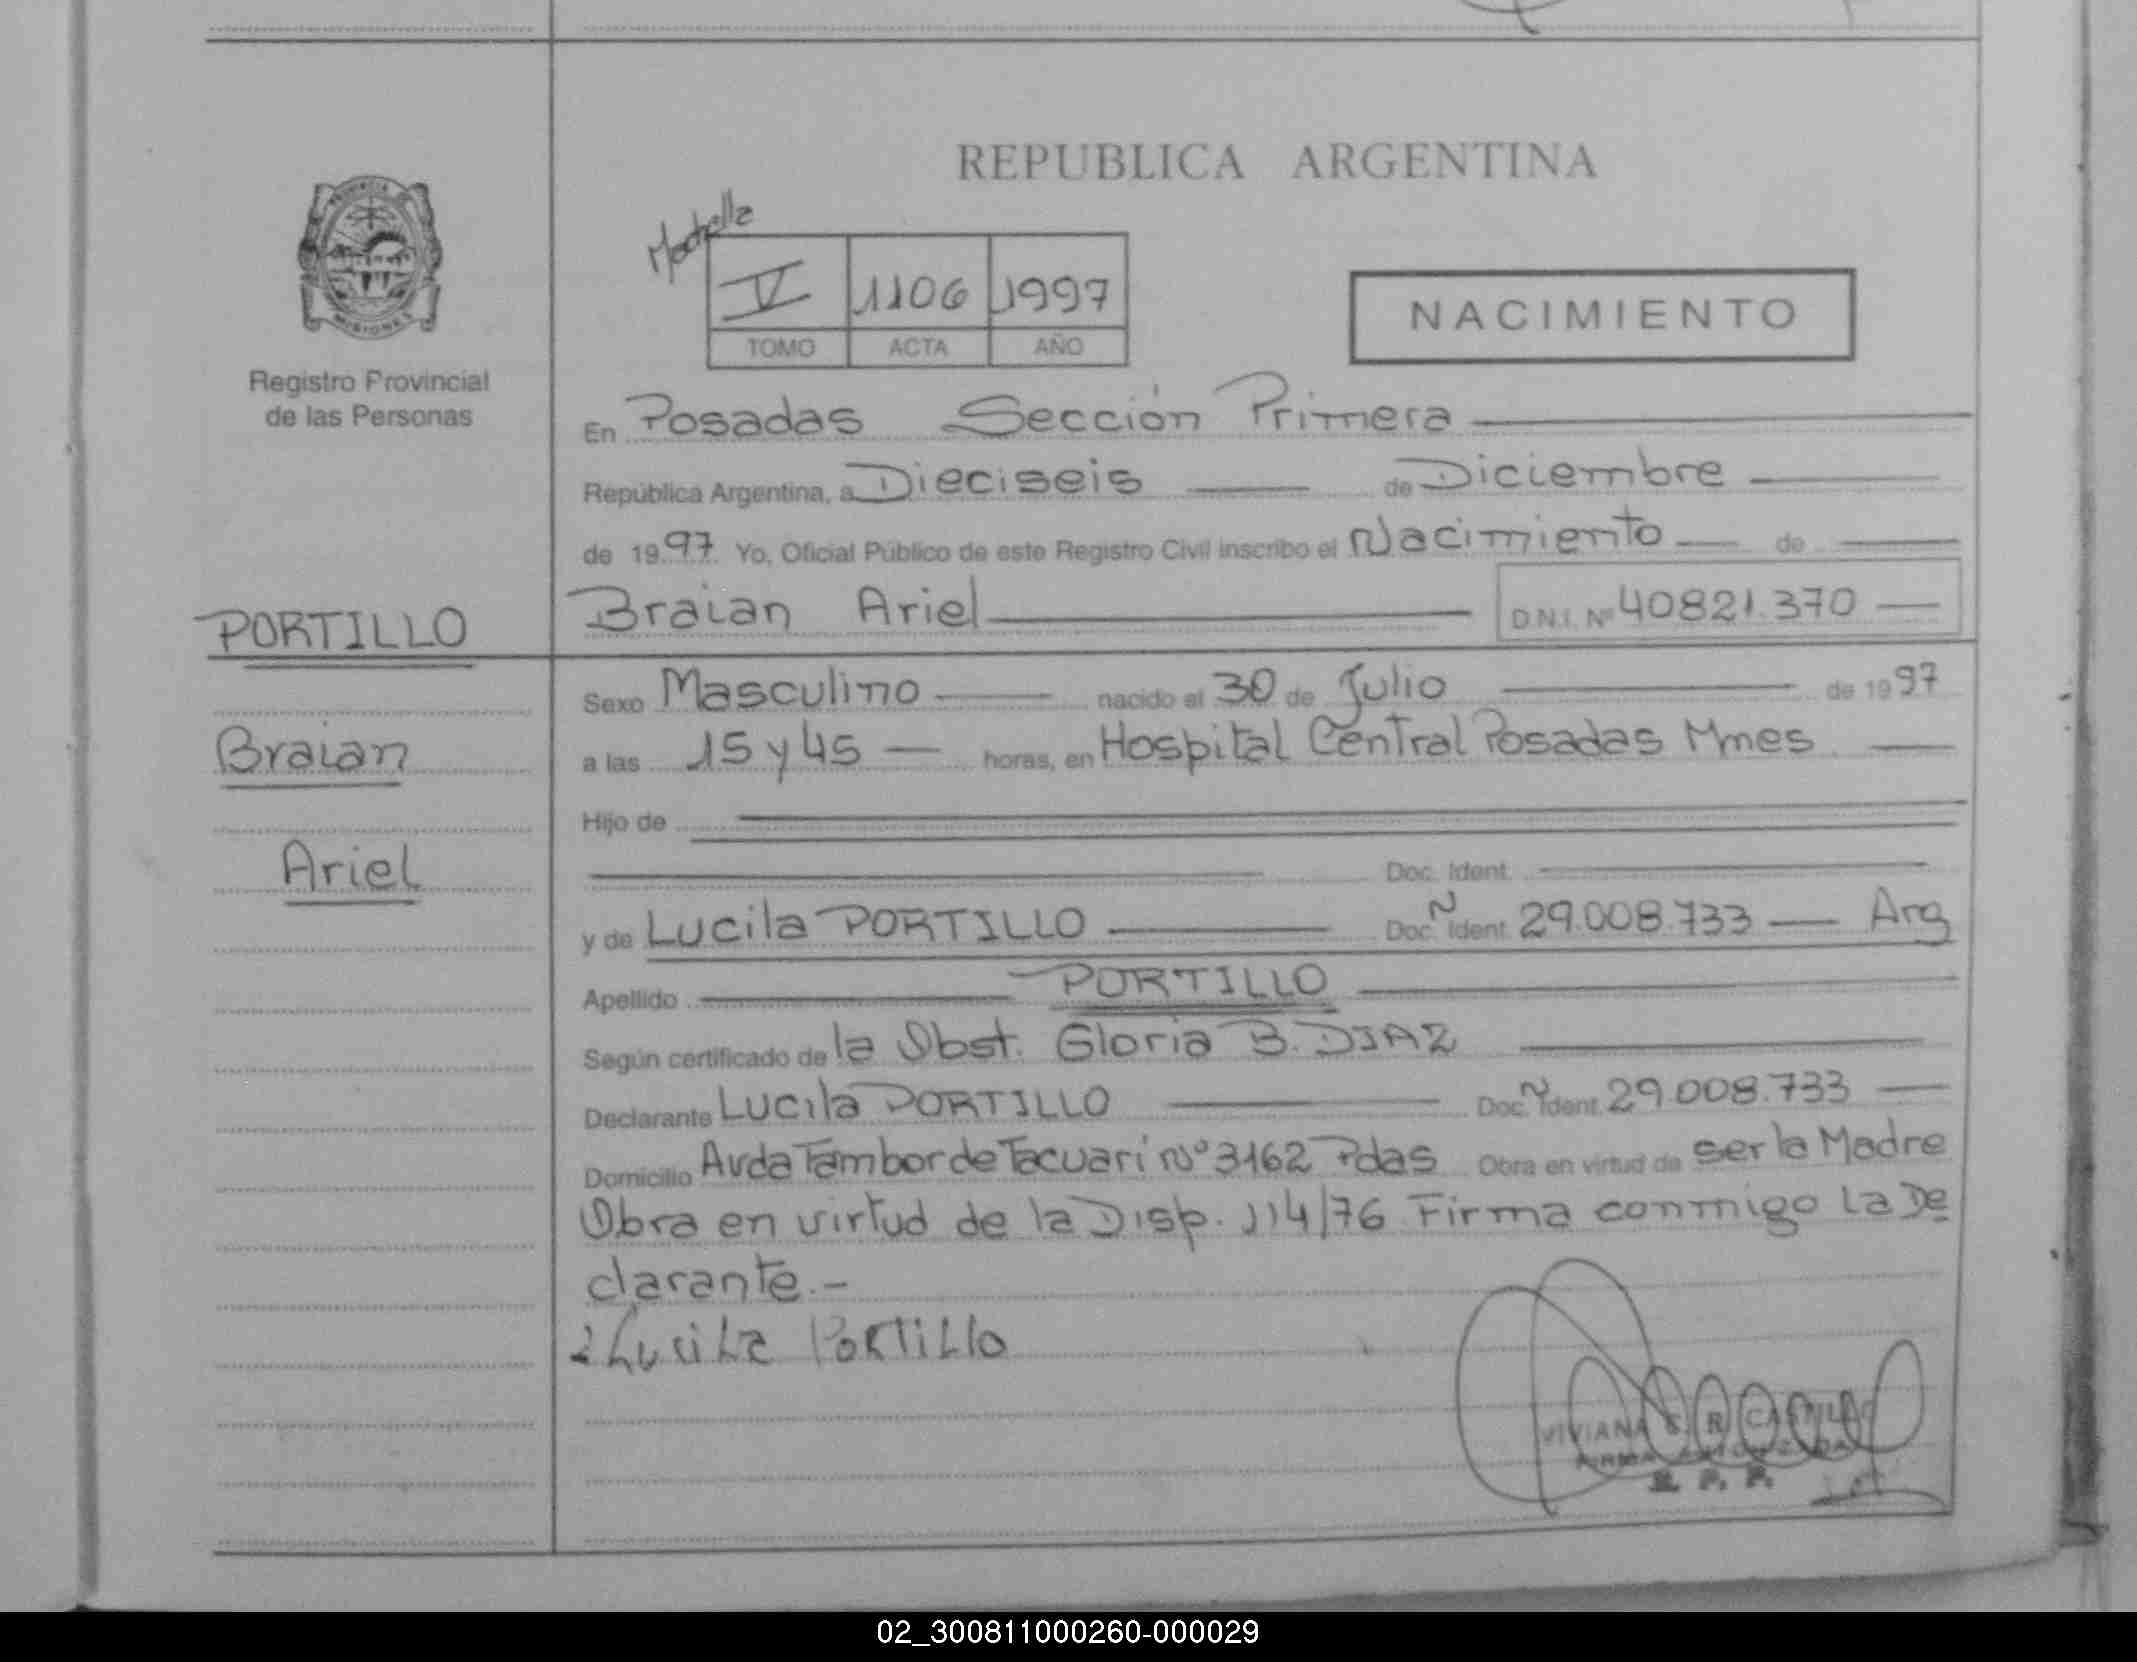 REPUBLICA ARGENTINA
PROVINCIA
MISIONES
Registro Provincial
de las Personas
V 1106 1997
TOMO ACTA AÑO
NACIMIENTO
En Posadas Sección Primera
República Argentina, a Dieciseis de Diciembre
de 1997 Yo, Oficial Público de este Registro Civil inscribo el Nacimiento de
PORTILLO
Braian Ariel D.N.I. Nº 40821.370
Sexo Masculino nacido el 30 de Julio de 1997
Braian
a las 15 y 45 horas, en Hospital Central Posadas Mnes
Hijo de
Ariel
Doc. Ident.
y de Lucila PORTILLO Doc. N Ident. 29.008.733 Arg
Apellido PORTILLO
Según certificado de la Obst. Gloria B. DIAZ
Declarante Lucila PORTILLO Doc. N Ident. 29.008.733
Domicilio Avda Tambor de Tacuarí Nº 3162 Pdas Obra en virtud de ser la Madre
Obra en virtud de la Disp. 114/76 Firma conmigo la De
clarante.-
Lucila Portillo
VIVIANA
FIRMA AUTORIZADA
R. P. P.
02_300811000260-000029